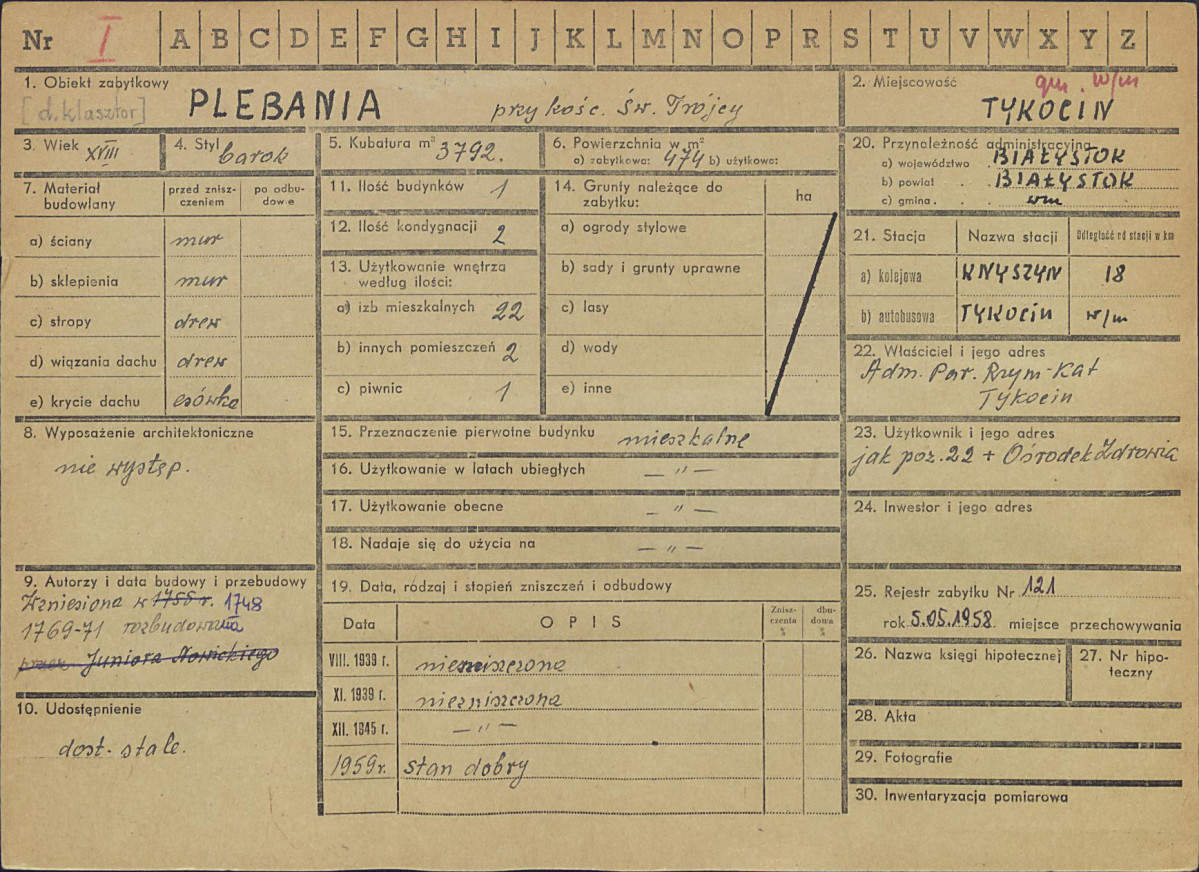 Nr I A B C D E F G H I J K L M N O P R S T U V W X Y Z
1. Obiekt zabytkowy
[d. klasztor] PLEBANIA przy kośc. Św. Trójcy
2. Miejscowość gm. w/m
TYKOCIN
3. Wiek XVIII
4. Styl barok
5. Kubatura m³ 3792.
6. Powierzchnia w m²
a) zabytkowa: 474 b) użytkowa:
7. Materiał budowlany
przed zniszczeniem
po odbudowie
a) ściany mur
b) sklepienia mur
c) stropy drew
d) wiązania dachu drew
e) krycie dachu esówka
8. Wyposażenie architektoniczne
nie występ.
9. Autorzy i data budowy i przebudowy
Wzniesiona w 1755 r. 1748
1769-71 rozbudowana
przez Juniora Nowickiego
10. Udostępnienie
dost. stale.
11. Ilość budynków 1
12. Ilość kondygnacji 2
13. Użytkowanie wnętrza
według ilości:
a) izb mieszkalnych 22
b) innych pomieszczeń 2
c) piwnic 1
14. Grunty należące do
zabytku:
ha
a) ogrody stylowe
b) sady i grunty uprawne
c) lasy
d) wody
e) inne
15. Przeznaczenie pierwotne budynku mieszkalne
16. Użytkowanie w latach ubiegłych — " —
17. Użytkowanie obecne — " —
18. Nadaje się do użycia na — " —
19. Data, rodzaj i stopień zniszczeń i odbudowy
Data
OPIS
Znisz-
czenia
%
dbu-
dowa
%
VIII. 1939 r. niezniszczona
XI. 1939 r. niezniszczona
XII. 1945 r. — " —
1959 r. stan dobry
20. Przynależność administracyjna
a) województwo BIAŁYSTOK
b) powiat . . BIAŁYSTOK
c) gmina . . . wm
21. Stacja
Nazwa stacji
Odległość od stacji w km
a) kolejowa KNYSZYN 18
b) autobusowa TYKOCIN w/m
22. Właściciel i jego adres
Adm. Par. Rzym-Kat
Tykocin
23. Użytkownik i jego adres
jak poz. 22 + Ośrodek Zdrowia
24. Inwestor i jego adres
25. Rejestr zabytku Nr 121
rok 5.05.1958. miejsce przechowywania
26. Nazwa księgi hipotecznej
27. Nr hipo-
teczny
28. Akta
29. Fotografie
30. Inwentaryzacja pomiarowa